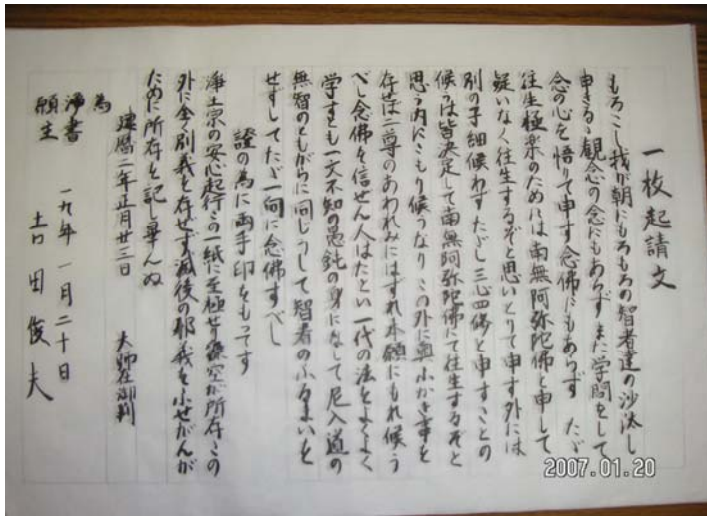 一枚起請文
もろこし我が朝にもろもろの智者達の沙汰し
申さるゝ観念の念にもあらずまた学問をして
念の心を悟りて申す念佛にもあらず たゞ
往生極楽のためには南無阿弥陀佛と申して
疑いなく往生するぞと思いとりて申す外には
別の子細候わず たゞし三心四修と申すことの
候うは皆決定して南無阿弥陀佛にて往生するぞと
思う内にこもり候うなり この外に奥ふかき事を
存ぜば二尊のあわれみにはずれ本願にもれ候う
べし念佛を信ぜん人はたとい一代の法をよくよく
学すとも一文不知の愚鈍の身になして尼入道の
無智のともがらに同じうして智者のふるまいを
せずしてたゞ一向に念佛すべし
證の為に両手印をもってす
浄土宗の安心起行この一紙に至極せり源空が所存この
外に全く別義を存ぜず滅後の邪義をふせがんが
ために所存を記し畢んぬ
建暦二年正月廿三日 大師在御判
為
浄書 一九年 一月二十日
願生 田俊夫
2007.01.20